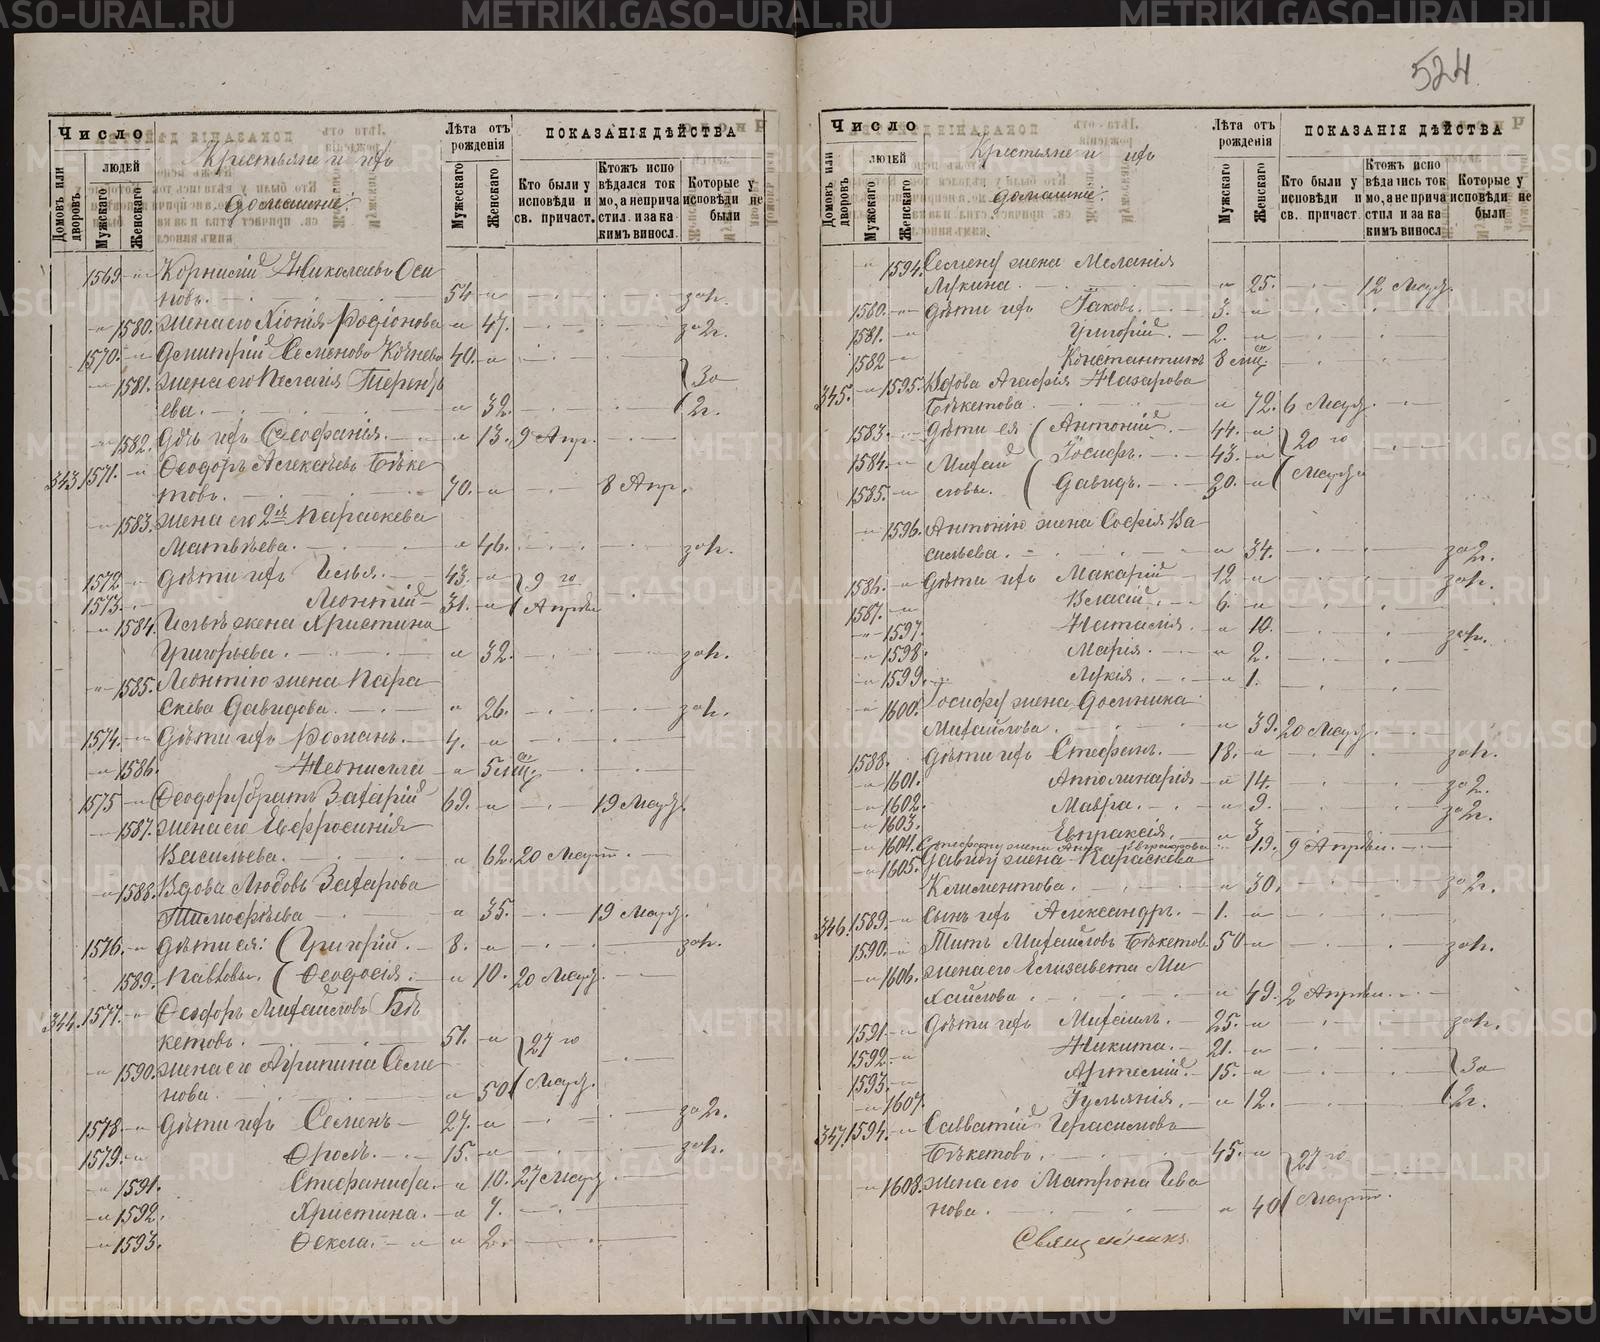 524
Число
Лѣта отъ рожденія
ПОКАЗАНІЯ ДѢЙСТВА
Домовъ или дворовъ.
людей
Мужескаго
Женскаго
Крестьяне и ихъ
домашніе.
Мужескаго
Женскаго
Кто были у исповѣди и св. причаст.
Ктожъ исповѣдался токмо, а не причастил. и за какимъ виносл.
Которые у исповѣди не были
1569 Корнилій Николаевъ Оси
новъ. 54 за н.
1580. жена его Хіонія Родіонова 47. за 2 г.
1570. Димитрій Семеновъ 40.
1581. жена его Пелагія Терентьева
ева. 32. за 2 г.
1582. Дочь ихъ Ѳеофанія. 13. 9 Апр.
343. 1571. Ѳеодоръ Алексѣевъ Бѣке
товъ. 70. 8 Апр.
1583. жена его 2я Параскева
Матвѣева. 46. за н.
1572. Дѣти ихъ Илья. 43. 9го
1573. Леонтій 31. Апрѣля
1584. Ильѣ жена Христина
Григорьева. 32. за н.
1585. Леонтію жена Пара
скева Давидова. 26. за н.
1574. Дѣти ихъ Романъ. 4.
1586. Неонилла 5 мц.
1575 Ѳеодору братъ Захарій 69. 19 Мар.
1587. жена его Евфросинія
Васильева. 62. 20 Март.
1588. Вдова Любовь Захарова
Тимофѣева 35. 19 Мар.
1576. Дѣти ея: Григорій. 8. за н.
1589. Павловы. Ѳеодосія. 10. 20 Мар.
344. 1577. Ѳеодоръ Михайловъ Бѣ
кетовъ. 51. 27го
1590. жена его Агрипина Семе
нова. 50 Мар.
1578. Дѣти ихъ Семенъ 27. за 2 г.
1579. Фролъ. 15. за н.
1591. Стефанида. 10. 27 Мар.
1592. Христина. 7.
1593. Ѳекла. 2.
Число
Лѣта отъ рожденія
ПОКАЗАНІЯ ДѢЙСТВА
Домовъ или дворовъ
людей
Мужескаго
Женскаго
Крестьяне и ихъ
домашніе.
Мужескаго
Женскаго
Кто были у исповѣди и св. причаст
Ктожъ исповѣдались токмо, а не причастил и за какимъ виносл
Которые у исповѣди не были
1594. Семену жена Меланія
Лукина. 25. 12 Мар.
1580. Дѣти ихъ Іаковъ. 3.
1581. Григорій. 2.
1582 Константинъ 8 мц.
345. 1595. Вдова Агафія Назарова
Бѣкетова. 72. 6 Мар.
1583. Дѣти ея Антоній. 44. 20го
1584. Михай Іосифъ. 43.
1585. ловы. Давидъ. 30. Марта
1596. Антонію жена Софія Ва
сильева. 34. за 2 г.
1586. Дѣти ихъ Макарій 12 за н.
1587. Власій. 6.
1597. Наталія. 10. за н.
1598. Марія. 2.
1599. Лукія. 1.
1600. Іосифу жена Домника
Михайлова. 39. 20 Мар.
1588. Дѣти ихъ Стефанъ. 18. за н.
1601. Апполинарія 14. за 2.
1602. Мавра. 9. за 2 г.
1603. Евпраксія. 3
1604. Стефану жена Анна 19. 9 Апрѣл.
1605. Давиду жена Параскева
Климентова. 30. за 2 г.
346. 1589. Сынъ ихъ Александръ. 1.
1590. Титъ Михайловъ Бѣкетовъ 50 за н.
1606. жена его Елизавета Ми
хайлова. 49. 2 Апрѣл.
1591. Дѣти ихъ Михаилъ. 25. за н.
1592. Никита. 21.
1593. Артемій. 15. за
1607. Іуліянія. 12. 2 г.
347. 1594. Савватій Герасимовъ
Бѣкетовъ. 45. 27го
1608. жена его Матрона Ива
нова. 40 Март.
Священникъ
METRIKI.GASO-URAL.RU